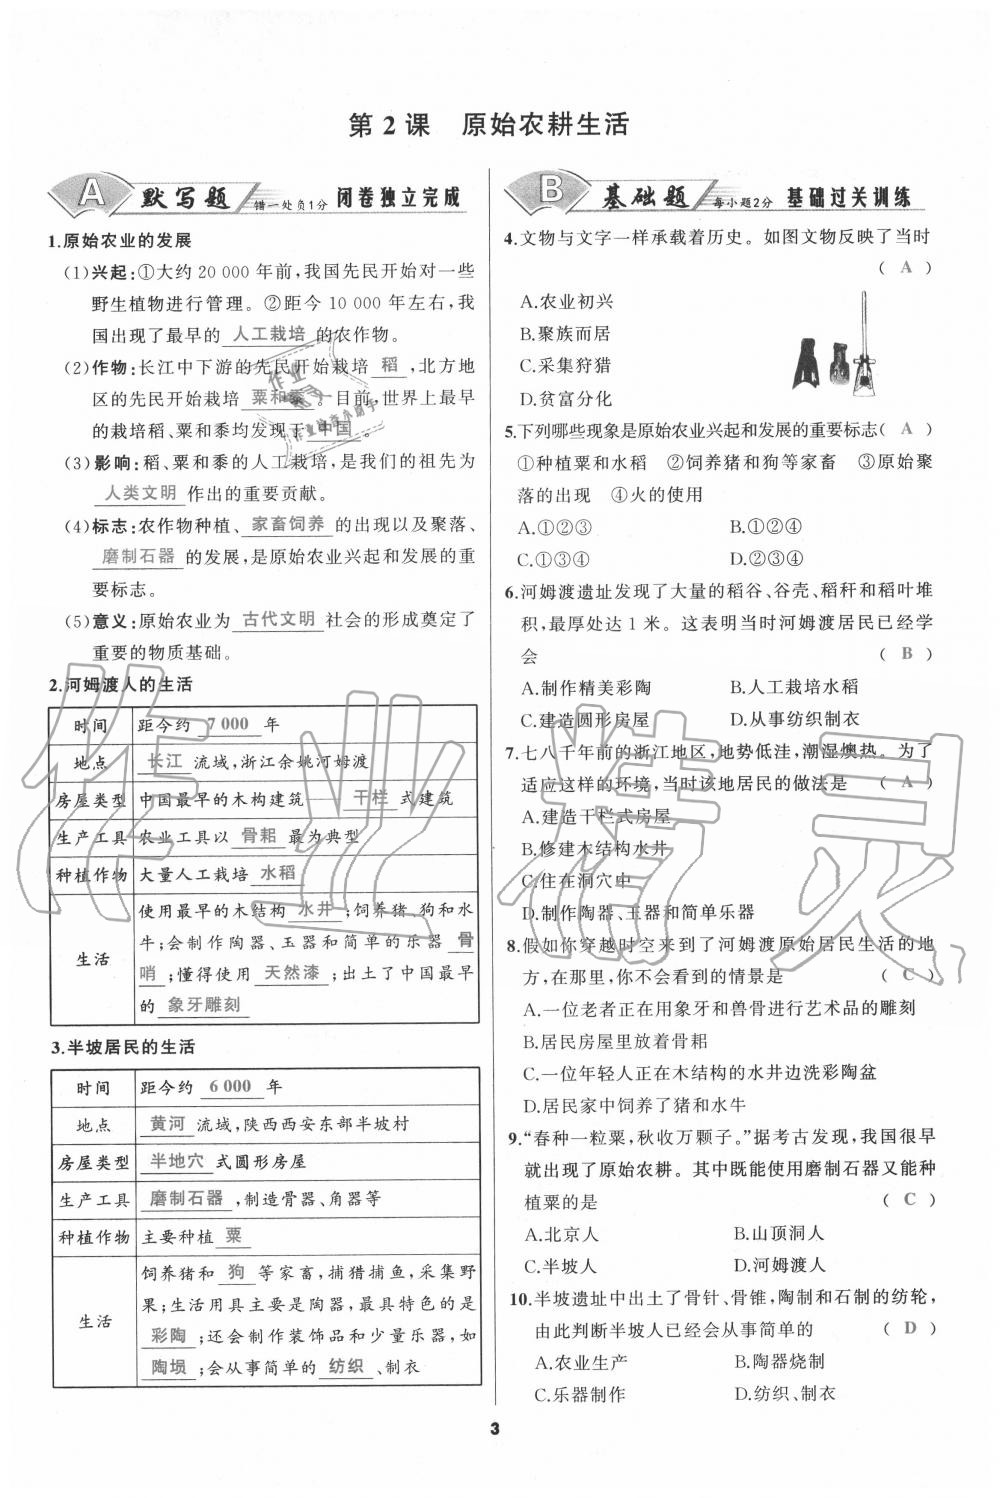 第2课　原始农耕生活
A 默写题 错一处负1分 闭卷独立完成
1.原始农业的发展
(1)兴起:①大约20 000年前,我国先民开始对一些
野生植物进行管理。②距今10 000年左右,我
国出现了最早的 人工栽培 的农作物。
(2)作物:长江中下游的先民开始栽培 稻 ,北方地
区的先民开始栽培 粟和黍 。目前,世界上最早
的栽培稻、粟和黍均发现于 中国 。
(3)影响:稻、粟和黍的人工栽培,是我们的祖先为
人类文明 作出的重要贡献。
(4)标志:农作物种植、 家畜饲养 的出现以及聚落、
磨制石器 的发展,是原始农业兴起和发展的重
要标志。
(5)意义:原始农业为 古代文明 社会的形成奠定了
重要的物质基础。
2.河姆渡人的生活
时间 距今约 7 000 年
地点 长江 流域,浙江余姚河姆渡
房屋类型 中国最早的木构建筑—— 干栏 式建筑
生产工具 农业工具以 骨耜 最为典型
种植作物 大量人工栽培 水稻
生活 使用最早的木结构 水井 ;饲养猪、狗和水
牛;会制作陶器、玉器和简单的乐器 骨
哨 ;懂得使用 天然漆 ;出土了中国最早
的 象牙雕刻
3.半坡居民的生活
时间 距今约 6 000 年
地点 黄河 流域,陕西西安东部半坡村
房屋类型 半地穴 式圆形房屋
生产工具 磨制石器 ,制造骨器、角器等
种植作物 主要种植 粟
生活 饲养猪和 狗 等家畜,捕猎捕鱼,采集野
果;生活用具主要是陶器,最具特色的是
彩陶 ;还会制作装饰品和少量乐器,如
陶埙 ;会从事简单的 纺织 、制衣
B 基础题 每小题2分 基础过关训练
4.文物与文字一样承载着历史。如图文物反映了当时
( A )
A.农业初兴
B.聚族而居
C.采集狩猎
D.贫富分化
5.下列哪些现象是原始农业兴起和发展的重要标志( A )
①种植粟和水稻　②饲养猪和狗等家畜　③原始聚
落的出现　④火的使用
A.①②③　B.①②④
C.①③④　D.②③④
6.河姆渡遗址发现了大量的稻谷、谷壳、稻秆和稻叶堆
积,最厚处达1米。这表明当时河姆渡居民已经学
会 ( B )
A.制作精美彩陶　B.人工栽培水稻
C.建造圆形房屋　D.从事纺织制衣
7.七八千年前的浙江地区,地势低洼,潮湿燠热。为了
适应这样的环境,当时该地居民的做法是 ( A )
A.建造干栏式房屋
B.修建木结构水井
C.住在洞穴中
D.制作陶器、玉器和简单乐器
8.假如你穿越时空来到了河姆渡原始居民生活的地
方,在那里,你不会看到的情景是 ( C )
A.一位老者正在用象牙和兽骨进行艺术品的雕刻
B.居民房屋里放着骨耜
C.一位年轻人正在木结构的水井边洗彩陶盆
D.居民家中饲养了猪和水牛
9.“春种一粒粟,秋收万颗子。”据考古发现,我国很早
就出现了原始农耕。其中既能使用磨制石器又能种
植粟的是 ( C )
A.北京人　B.山顶洞人
C.半坡人　D.河姆渡人
10.半坡遗址中出土了骨针、骨锥,陶制和石制的纺轮,
由此判断半坡人已经会从事简单的 ( D )
A.农业生产　B.陶器烧制
C.乐器制作　D.纺织、制衣
3
作业精灵